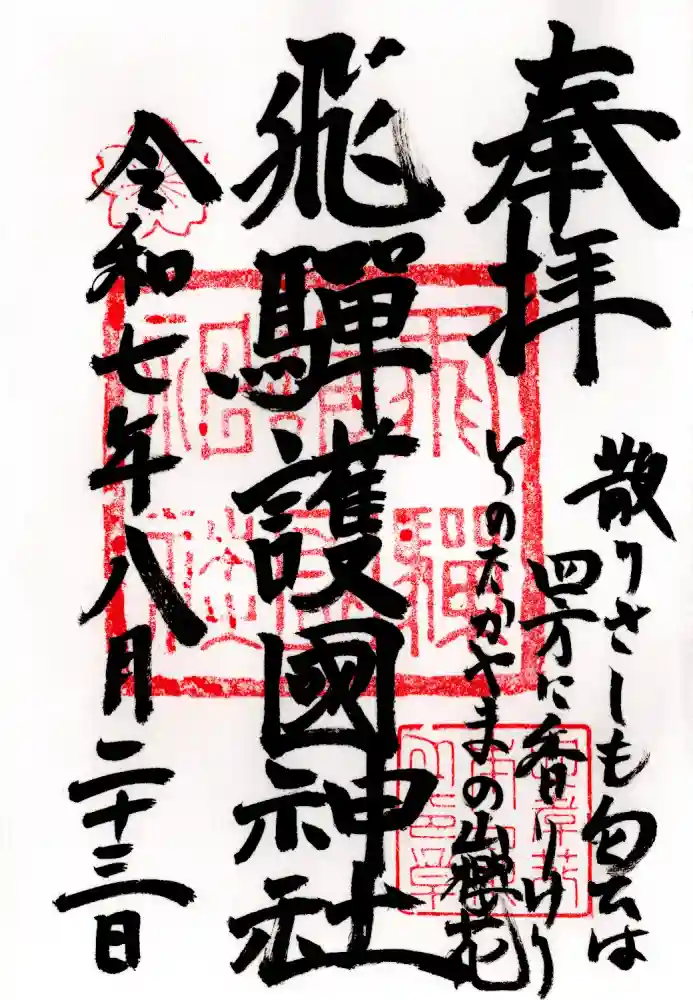 奉拝
散りさしも匂は
四方に香りけり
のたかやまの山櫻花
飛騨護國神社
令和七年八月二十三日